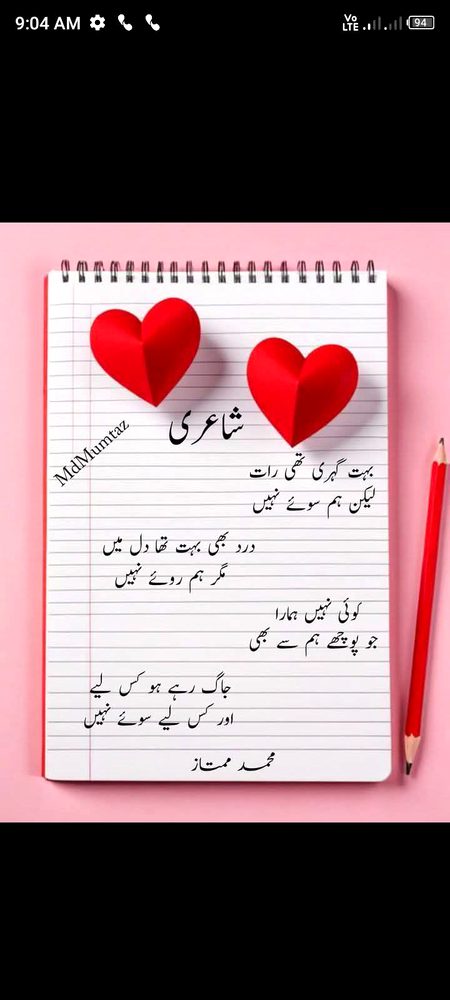 9:04 AM
Vo LTE
94
شاعری
MdMumtaz
بہت گہری تھی رات
لیکن ہم سوئے نہیں
درد بھی بہت تھا دل میں
مگر ہم روئے نہیں
کوئی نہیں ہمارا
جو پوچھے ہم سے بھی
جاگ رہے ہو کس لیے
اور کس لیے سوئے نہیں
محمد ممتاز